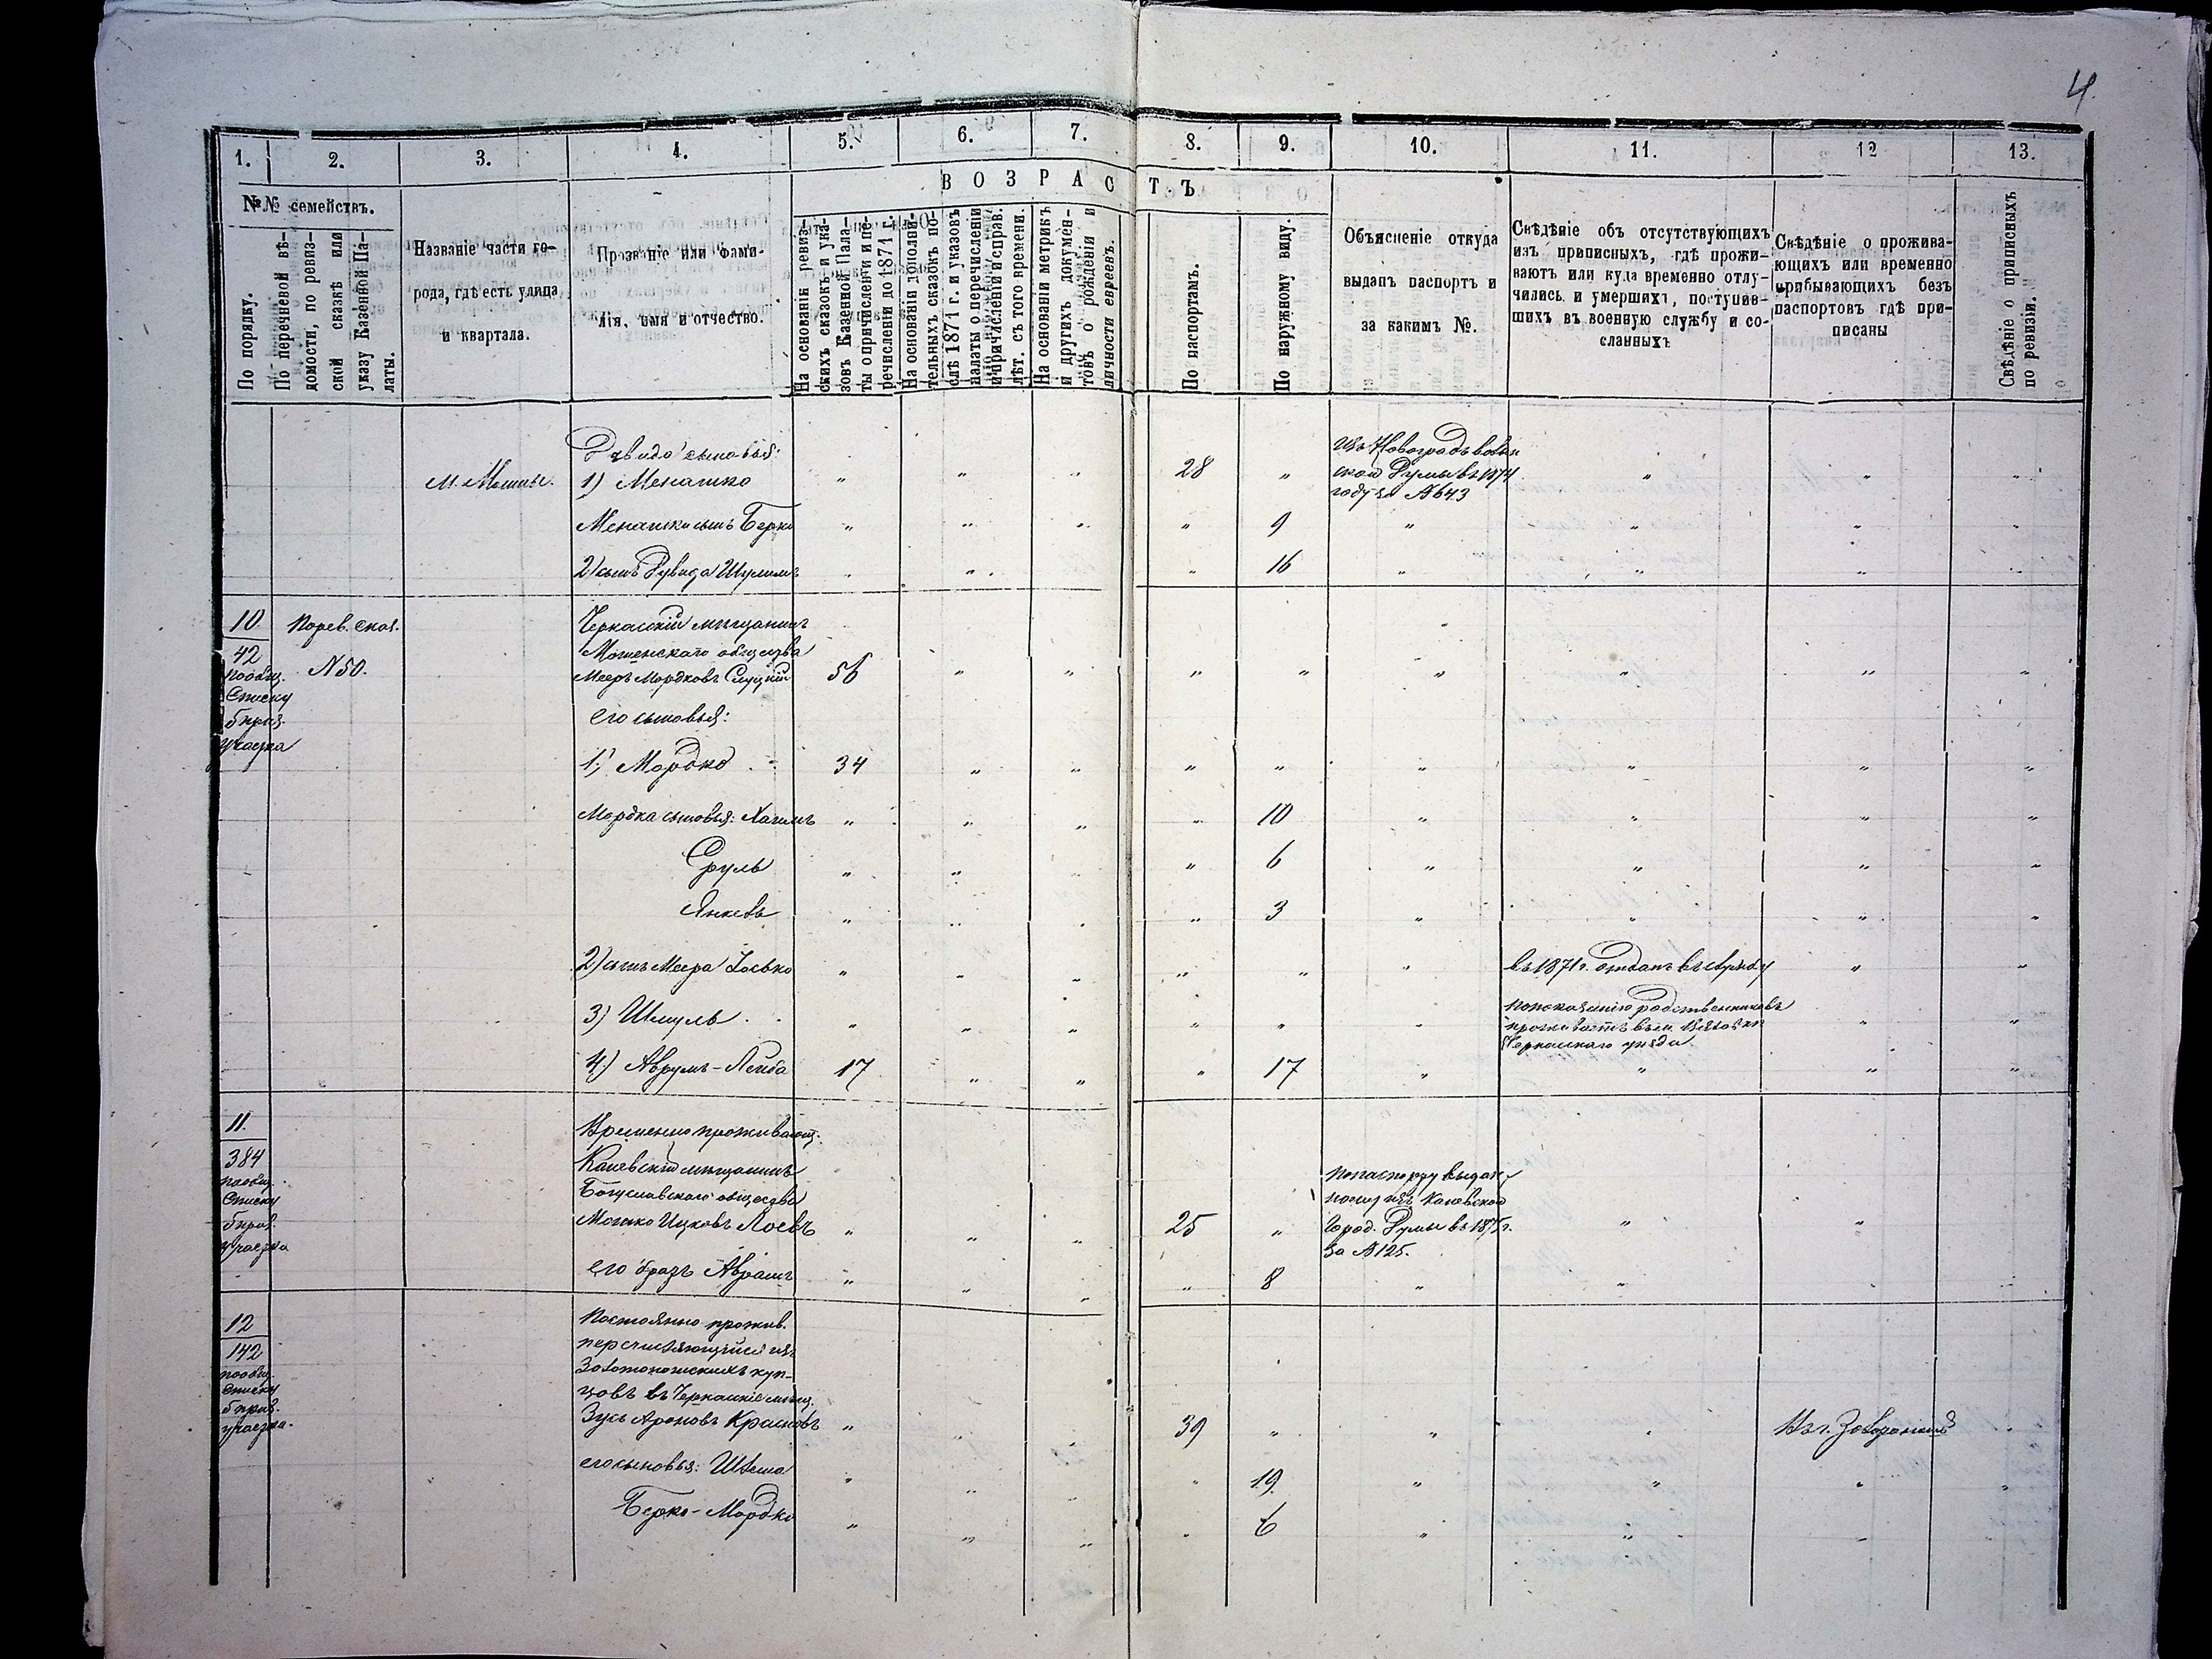 4.
1. 2. 3. 4. 5. 6. 7. 8. 9. 10. 11. 12 13.
№№ семействъ.
По порядку.
По перечневой вѣ-
домости, по ревиз-
ской сказкѣ или
указу Казенной Па-
латы.
Названіе части го-
рода, гдѣ есть улица
и квартала.
Прозвініе или фами-
лія, имя и отчество.
ВОЗРАСТЪ.
На основаніи ревиз-
скихъ сказокъ и ука-
зовъ Казенной Пала-
ты о причисленіи и пе-
речисленіи до 1871 г.
На основаніи дополни-
тельныхъ сказокъ по-
слѣ 1871 г. и указовъ
палаты о перечисленіи
и причисленіи исправ.
лѣт. съ того времени.
На основаніи метрикъ
и другихъ докумен-
товъ о рожденіи и
личности евреевъ.
По паспортамъ.
По наружному виду.
Объясненіе откуда
выданъ паспортъ и
за какимъ №.
Свѣдѣніе объ отсутствующихъ
изъ приписныхъ, гдѣ прожи-
ваютъ или куда временно отлу-
чились и умершихъ, поступив-
шихъ въ военную службу и со-
сланныхъ
Свѣдѣніе о прожива-
ющихъ или временно
прибывающихъ безъ
паспортовъ гдѣ при-
писаны
Свѣдѣніе о приписныхъ
по ревизіи.
Давида сыновья:
м. Мошны. 1) Менашко " " " 28 " " " "
Изъ Новоградъволын
ской Думы въ 1874
году за №643
Менашки сынъ Берко " " " " 9 " " " "
2) сынъ Давида Шулимъ " " " 16 " " " "
10.
42
по общ.
списку
б приз.
участка
По рев. сказ.
№50.
Черкасскій мѣщанинъ
Мошенскаго общества
Мееръ Мордковъ Слуцкій 56 " " " " " " " "
его сыновья:
1) Мордко 34 " " " " " " " "
Мордка сыновья: Хаимъ " " " " 10 " " " "
Сруль " " " 6 " " " "
Янкевъ " " " " 3 " " " "
2) сынъ Меера Іосько " " " " " " въ 1871 г. отданъ въ службу " "
3) Шмуль " " " " " "
по показанію родственниковъ
проживаетъ въ м.
Черкасскаго уѣзда " "
4) Аврумъ-Лейба 17 " " " 17 " " " "
11.
384
по общ.
списку
б приз.
участка
Временно проживающ.
Каневскій мѣщанинъ
Богуславскаго общества
Мошко Ицковъ Лоевъ " " " 25 " " "
по паспорту выдан-
ному изъ Каневской
Город. Думы въ 1875 г.
за №125.
его братъ Аврамъ " " " " 8 " "
12
142
по общ.
списку
б приз.
участка.
Постоянно прожив.
перечисляющійся изъ
Золотоношскихъ куп-
цовъ въ Черкасскіе мѣщ.
Зусь Ароновъ Красновъ " " " 39 " " "
его сыновья: " " " " 19. " " " "
Берко-Мордко " " " " 6 " " "